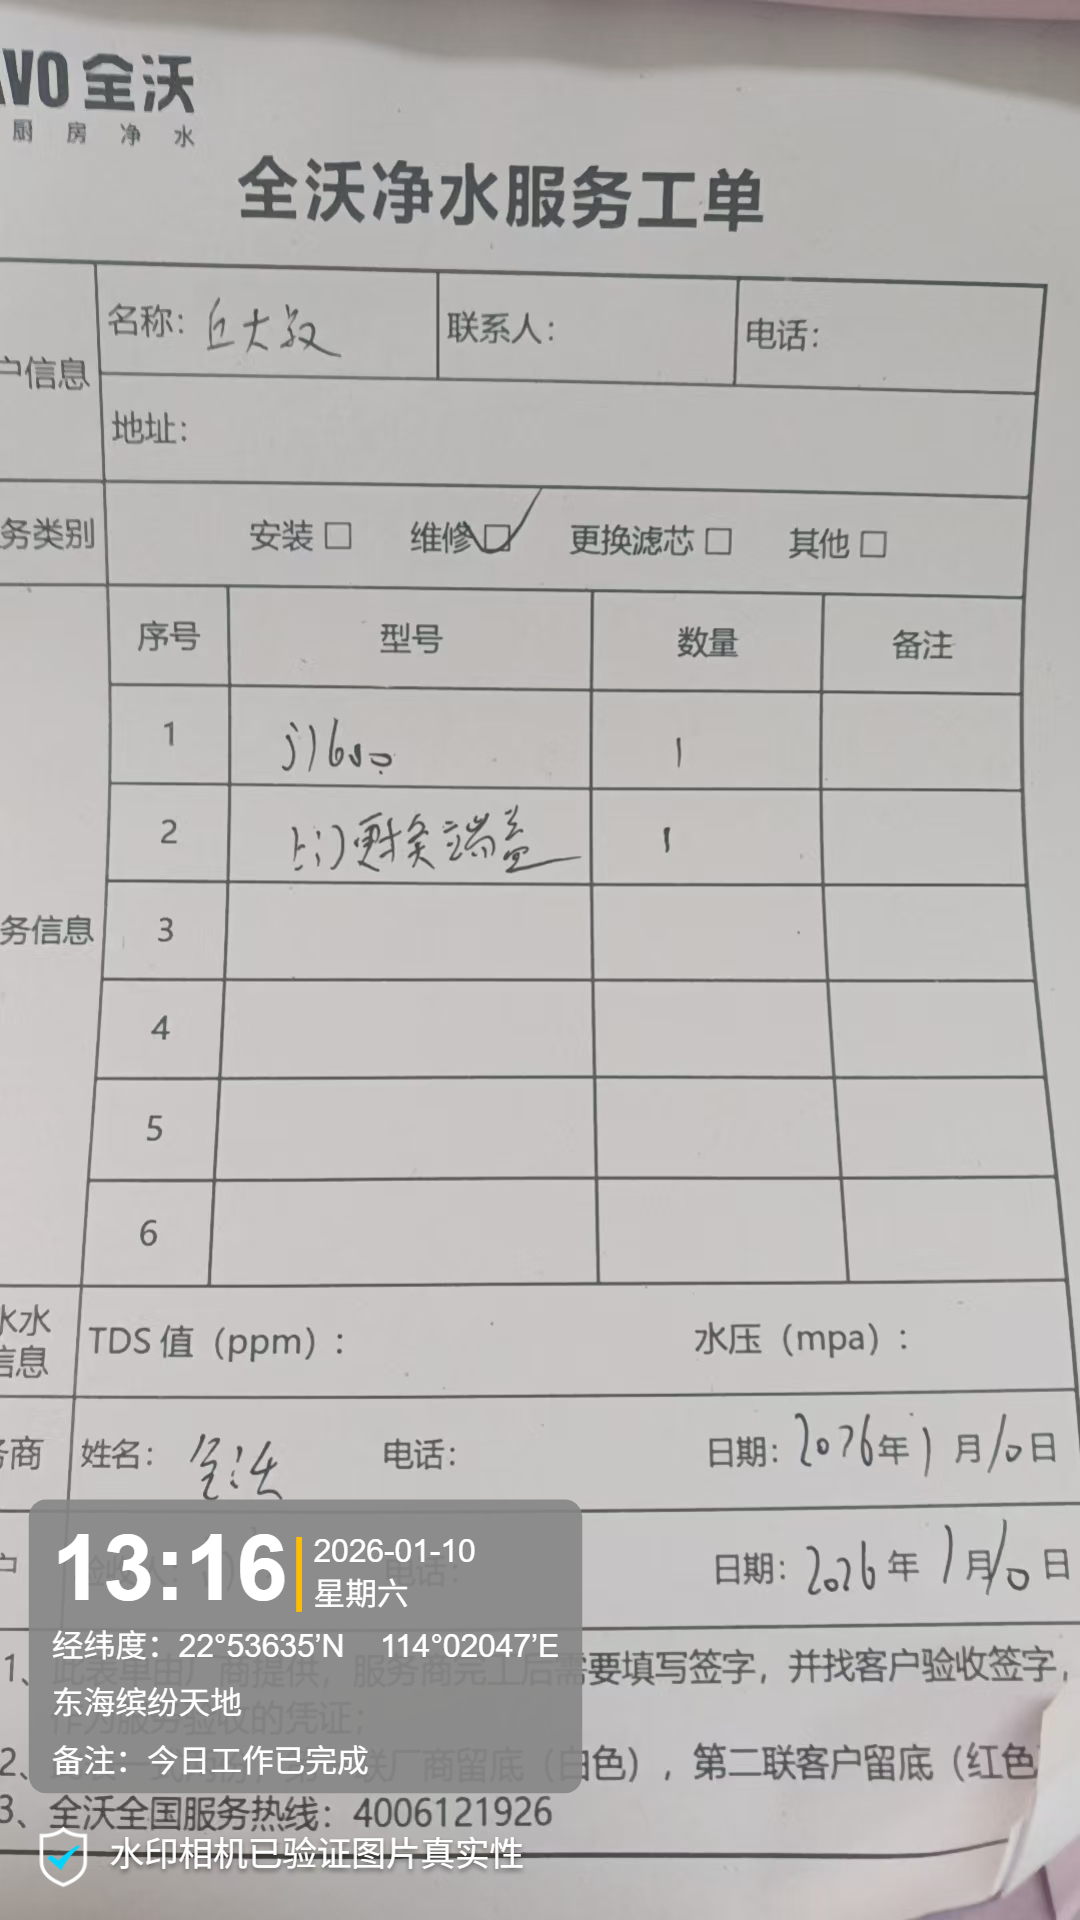 AVO 全沃
厨房净水
全沃净水服务工单
户信息
名称：丘大 联系人： 电话：
地址：
务类别
安装 □ 维修 □ 更换滤芯 □ 其他 □
务信息
序号 型号 数量 备注
1 1
2 上门更换端盖 1
3
4
5
6
水水
信息
TDS 值（ppm）： 水压（mpa）：
务商 姓名：全沃 电话： 日期：2026年1月10日
户 验收人： 电话： 日期：2026年1月10日
1、此表单由厂商提供，服务商完工后需要填写签字，并找客户验收签字，
作为服务验收的凭证；
2、 联厂商留底（白色），第二联客户留底（红色
3、全沃全国服务热线：4006121926
13:16
2026-01-10
星期六
经纬度：22°53635’N 114°02047’E
东海缤纷天地
备注：今日工作已完成
水印相机已验证图片真实性